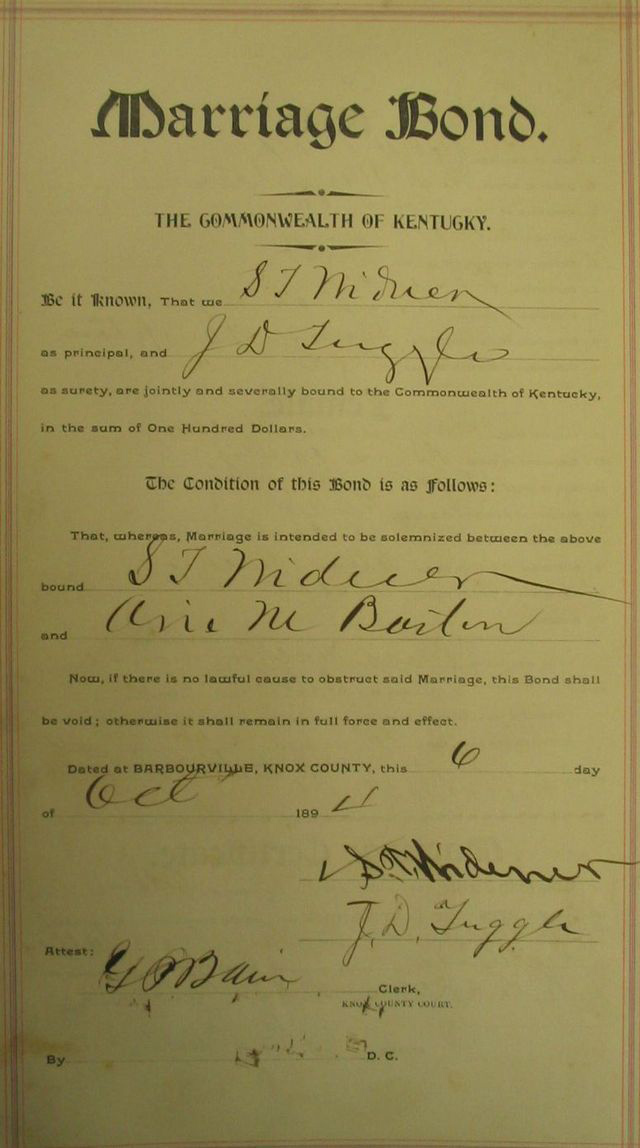 Marriage Bond.
THE COMMONWEALTH OF KENTUCKY.
Be it Known, That we S T Widner
as principal, and J D Tuggle
as surety, are jointly and severally bound to the Commonwealth of Kentucky,
in the sum of One Hundred Dollars.
The Condition of this Bond is as Follows:
That, whereas, Marriage is intended to be solemnized between the above
bound S T Widener
and M
Now, if there is no lawful cause to obstruct said Marriage, this Bond shall
be void; otherwise it shall remain in full force and effect.
Dated at BARBOURVILLE, KNOX COUNTY, this 6 day
of Oct 189
S. T. Widener
J. D. Tuggle
Attest:
Clerk,
KNOX COUNTY COURT.
By D. C.